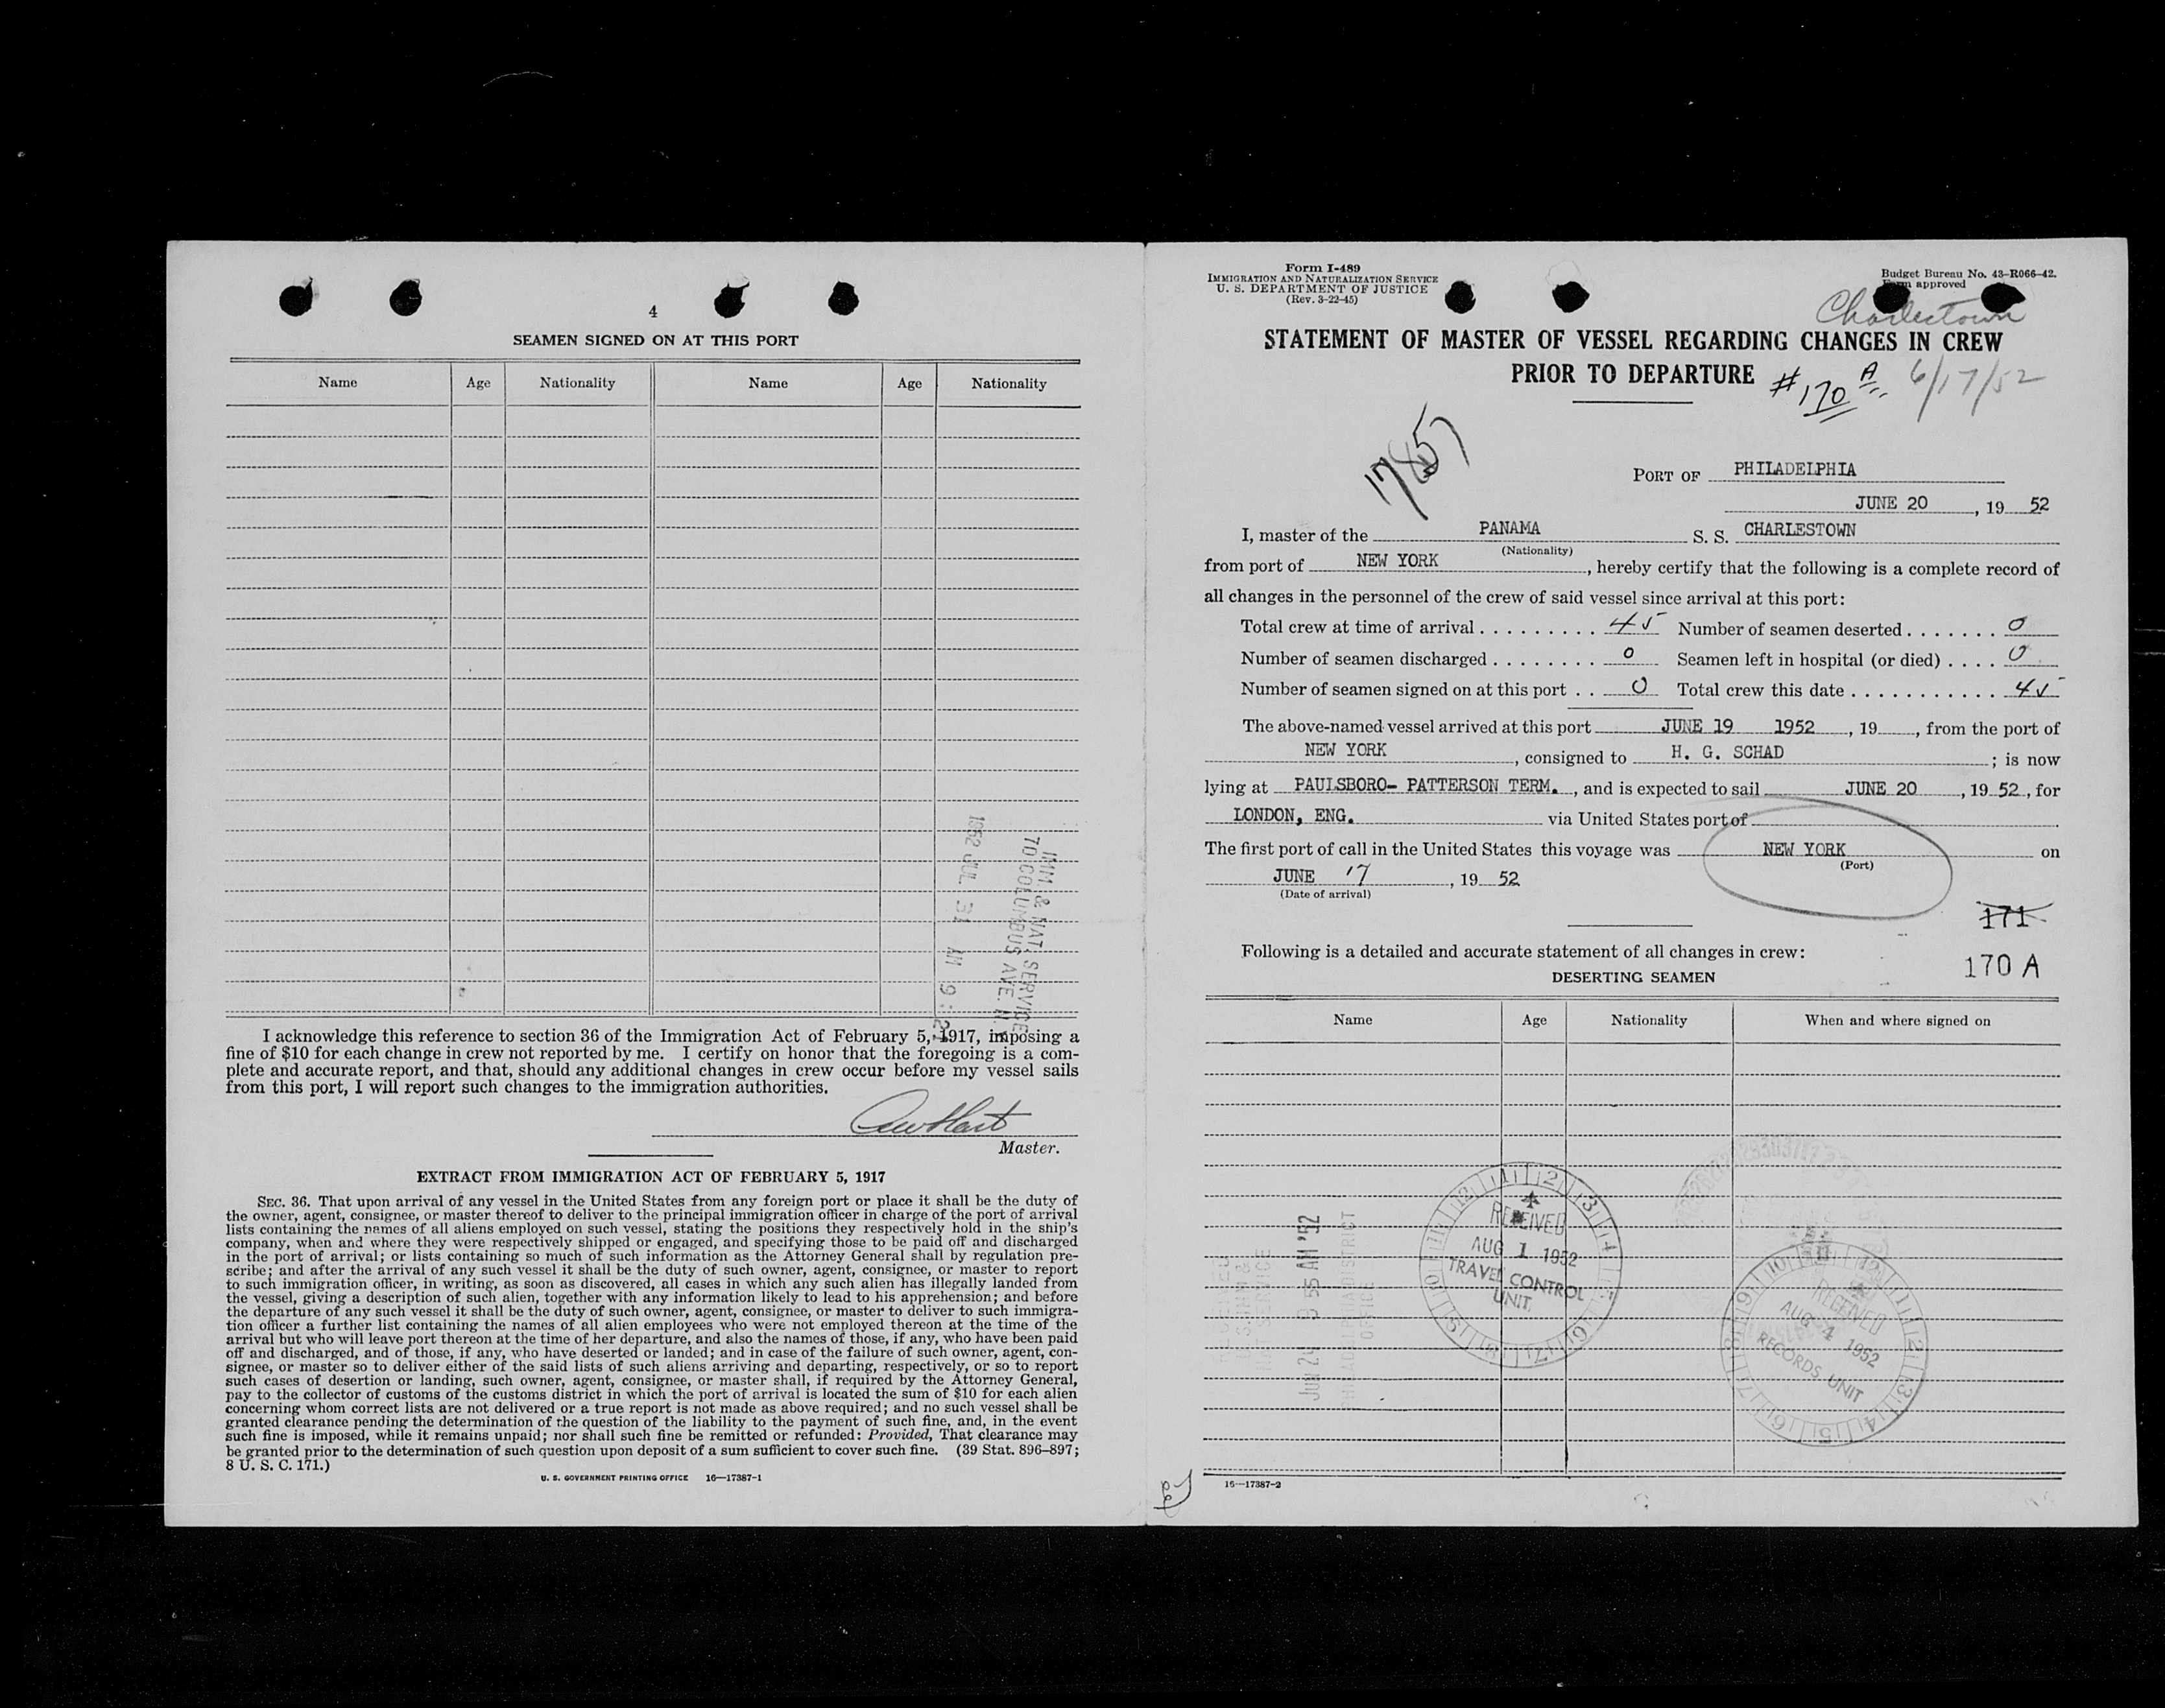 4
SEAMEN SIGNED ON AT THIS PORT
Name Age Nationality Name Age Nationality
1952 JUL 31 AM 9:2
IMM. & NAT. SERVICE
70 COLUMBUS AVE. N.Y.
I acknowledge this reference to section 36 of the Immigration Act of February 5, 1917, imposing a
fine of $10 for each change in crew not reported by me. I certify on honor that the foregoing is a com-
plete and accurate report, and that, should any additional changes in crew occur before my vessel sails
from this port, I will report such changes to the immigration authorities.
Master.
EXTRACT FROM IMMIGRATION ACT OF FEBRUARY 5, 1917
SEC. 36. That upon arrival of any vessel in the United States from any foreign port or place it shall be the duty of
the owner, agent, consignee, or master thereof to deliver to the principal immigration officer in charge of the port of arrival
lists containing the names of all aliens employed on such vessel, stating the positions they respectively hold in the ship's
company, when and where they were respectively shipped or engaged, and specifying those to be paid off and discharged
in the port of arrival; or lists containing so much of such information as the Attorney General shall by regulation pre-
scribe; and after the arrival of any such vessel it shall be the duty of such owner, agent, consignee, or master to report
to such immigration officer, in writing, as soon as discovered, all cases in which any such alien has illegally landed from
the vessel, giving a description of such alien, together with any information likely to lead to his apprehension; and before
the departure of any such vessel it shall be the duty of such owner, agent, consignee, or master to deliver to such immigra-
tion officer a further list containing the names of all alien employees who were not employed thereon at the time of the
arrival but who will leave port thereon at the time of her departure, and also the names of those, if any, who have been paid
off and discharged, and of those, if any, who have deserted or landed; and in case of the failure of such owner, agent, con-
signee, or master so to deliver either of the said lists of such aliens arriving and departing, respectively, or so to report
such cases of desertion or landing, such owner, agent, consignee, or master shall, if required by the Attorney General,
pay to the collector of customs of the customs district in which the port of arrival is located the sum of $10 for each alien
concerning whom correct lists are not delivered or a true report is not made as above required; and no such vessel shall be
granted clearance pending the determination of the question of the liability to the payment of such fine, and, in the event
such fine is imposed, while it remains unpaid; nor shall such fine be remitted or refunded: Provided, That clearance may
be granted prior to the determination of such question upon deposit of a sum sufficient to cover such fine. (39 Stat. 896–897;
8 U. S. C. 171.)
U. S. GOVERNMENT PRINTING OFFICE 16—17387-1
Form I-489
IMMIGRATION AND NATURALIZATION SERVICE
U. S. DEPARTMENT OF JUSTICE
(Rev. 3-22-45)
Budget Bureau No. 43-R066-42.
Form approved
Charlestown
STATEMENT OF MASTER OF VESSEL REGARDING CHANGES IN CREW
PRIOR TO DEPARTURE #170 A 6/17/52
17857
PORT OF PHILADELPHIA
JUNE 20, 19 52
I, master of the PANAMA S. S. CHARLESTOWN
(Nationality)
from port of NEW YORK, hereby certify that the following is a complete record of
all changes in the personnel of the crew of said vessel since arrival at this port:
Total crew at time of arrival . . . . . . . . . 45 Number of seamen deserted . . . . . . . 0
Number of seamen discharged . . . . . . . . 0 Seamen left in hospital (or died) . . . . 0
Number of seamen signed on at this port . . 0 Total crew this date . . . . . . . . . . . 45
The above-named vessel arrived at this port JUNE 19 1952, 19, from the port of
NEW YORK, consigned to H. G. SCHAD; is now
lying at PAULSBORO- PATTERSON TERM., and is expected to sail JUNE 20, 19 52, for
LONDON, ENG. via United States port of
The first port of call in the United States this voyage was NEW YORK on
(Port)
JUNE 17, 19 52
(Date of arrival)
171
170 A
Following is a detailed and accurate statement of all changes in crew:
DESERTING SEAMEN
Name Age Nationality When and where signed on
JUN 24 55 AM '52
PHILADELPHIA DISTRICT
OFFICE
RECEIVED
AUG 1 1952
TRAVEL CONTROL
UNIT
RECEIVED
AUG 4 1952
RECORDS UNIT
16—17387-2